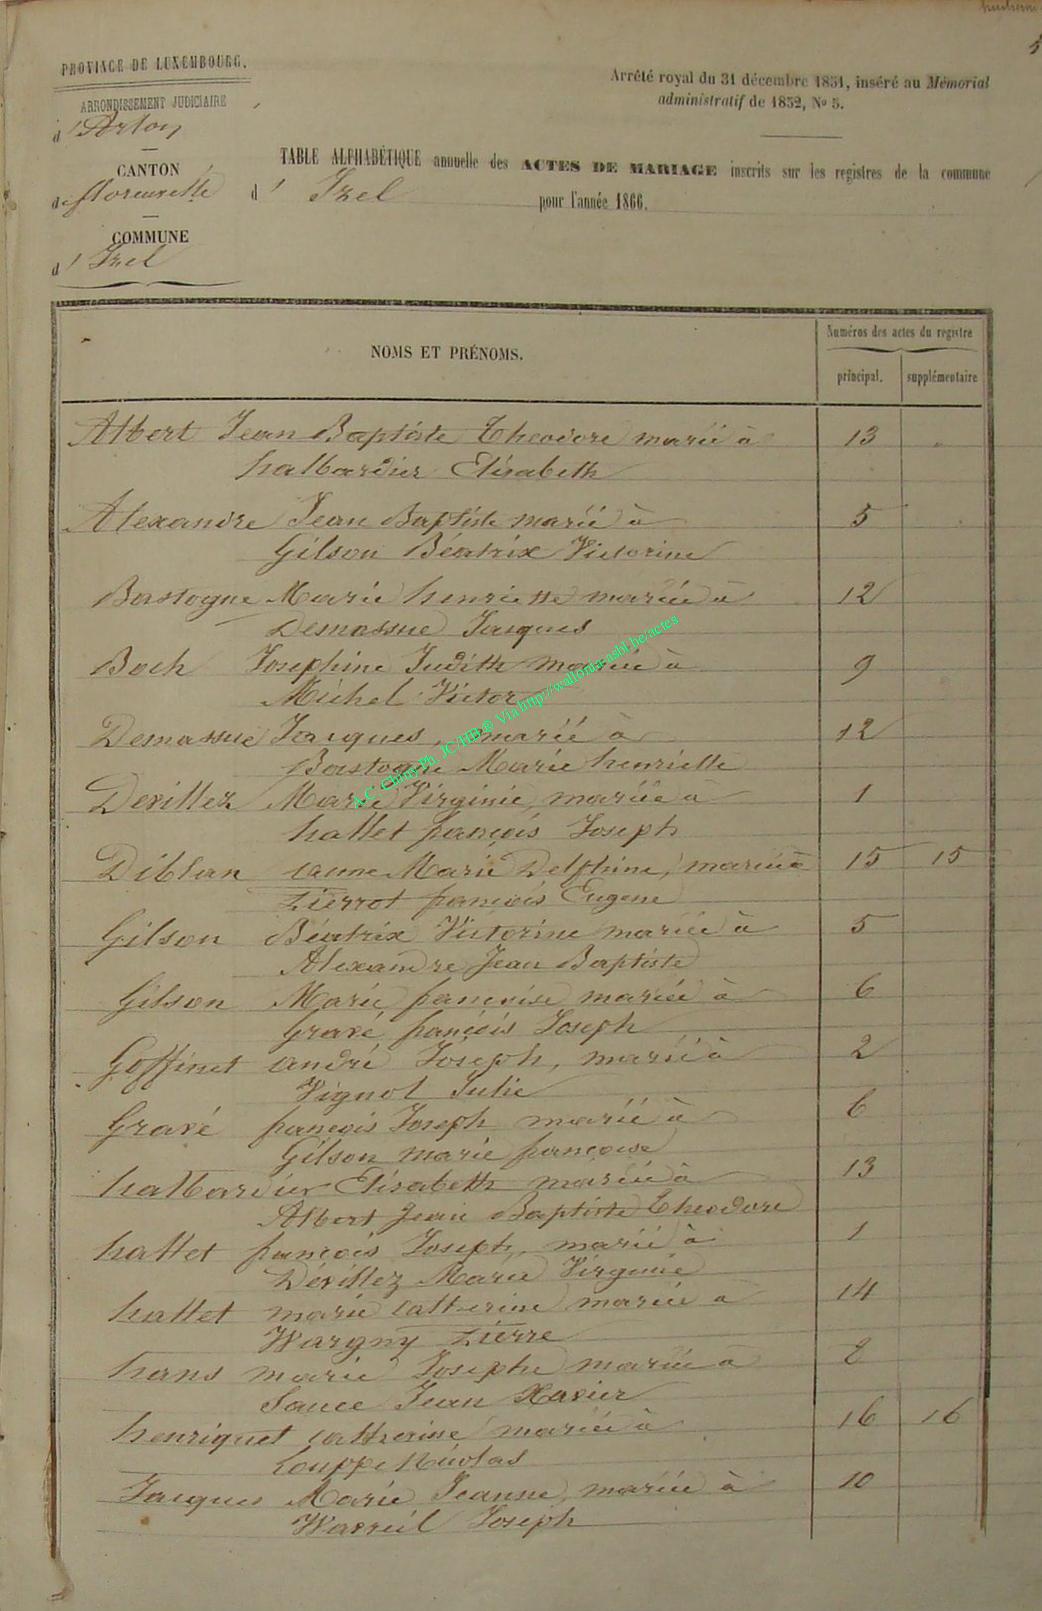 PROVINCE DE LUXEMBOURG.
ARRONDISSEMENT JUDICIAIRE
d'Arlon
CANTON
de florenville
COMMUNE
d'Izel
Arrêté royal du 31 décembre 1851, inséré au Mémorial
administratif de 1852, No 5.
TABLE ALPHABÉTIQUE annuelle des ACTES DE MARIAGE inscrits sur les registres de la commune
d' Izel pour l'année 1866.
NOMS ET PRÉNOMS.
Numéros des actes du registre
principal. supplémentaire
Albert Jean Baptiste Theodore marié à 13
halbardier Elisabeth
Alexandre Jean Baptiste marié à 5
Gilson Béatrix Victorine
Bastogne Marie henriette mariée à 12
Demassue Jacques
Boch Josephine Judith mariée à 9
Michel Victor
Demassue Jacques, marié à 12
Bastogne Marie henriette
Devillez Marie Virginie, mariée à 1
hallet françois Joseph
Diblan anne Marie Delphine, mariée à 15 15
Pierrot françois Eugene
Gilson Béatrix Victorine mariée à 5
Alexandre Jean Baptiste
Gilson Marie françoise mariée à 6
Gravé françois Joseph
Goffinet andré Joseph, marié à 2
Vignol Julie
Gravé françois Joseph marié à 6
Gilson marie françoise
halbardier Elisabeth mariée à 13
Albert Jean Baptiste Theodore
hallet françois Joseph, marié à 1
Dévillez Marie Virginie
hallet marie catherine mariée à 14
Wargny Pierre
hans marie Josephe mariée à 8
Sauce Jean Xavier
henriquet catherine mariée à 16 16
Louppe Nicolas
Jacques Marie Jeanne, mariée à 10
Joseph
A.C. Chiny Ph. JC/HB® Via http://wallonia-asbl.be/actes